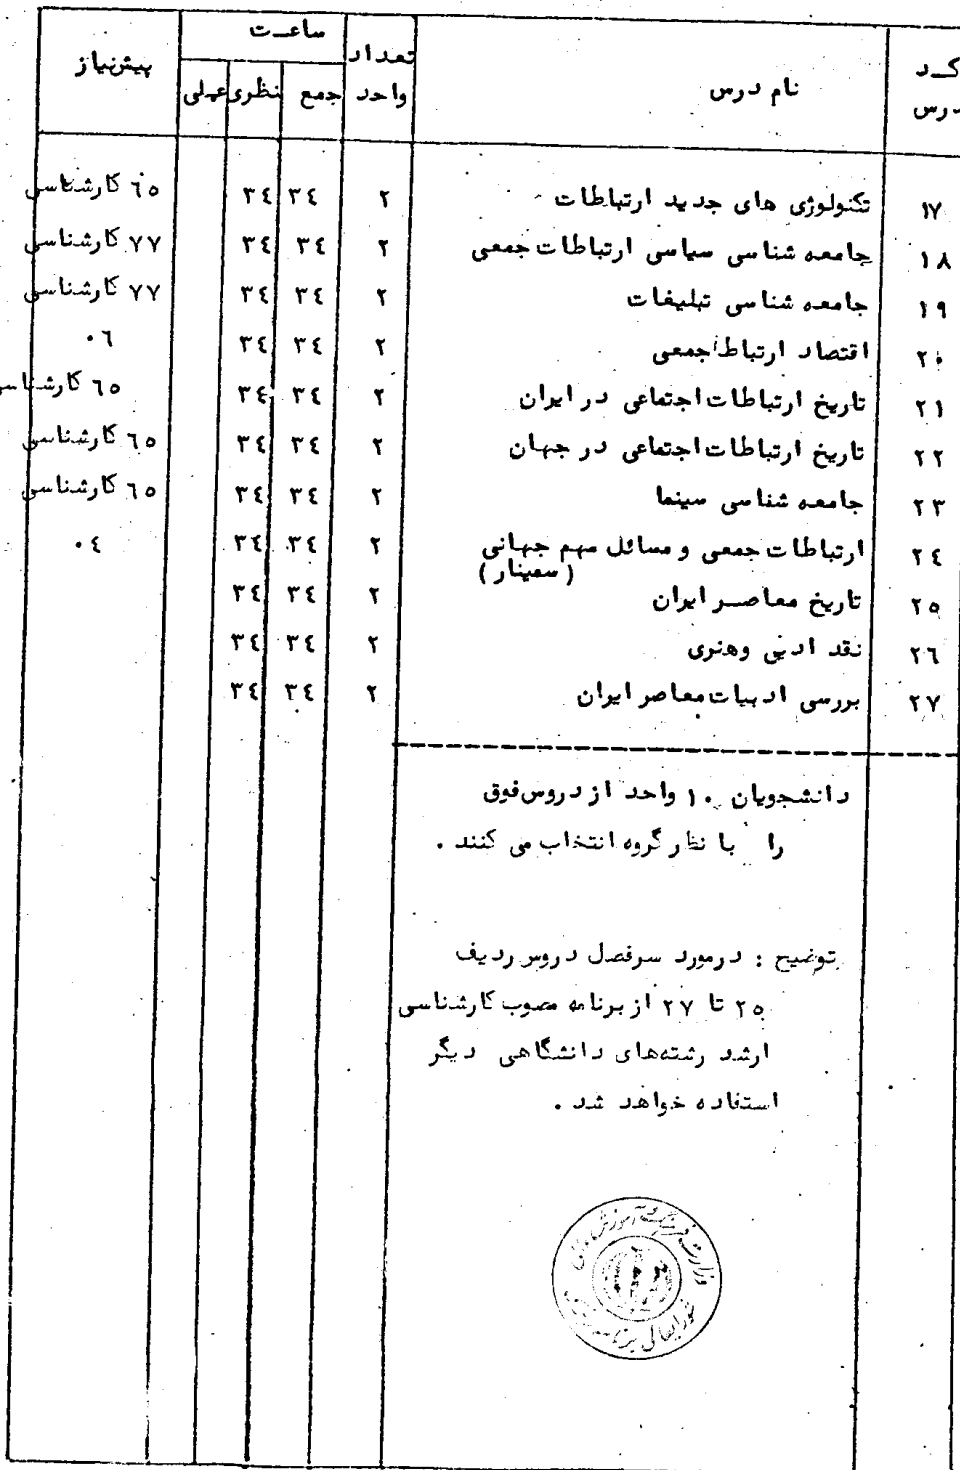 کـد درس نام درس تعداد واحد ساعـت پیش‌نیاز
جمع نظری عملی
۱۷ تکنولوژی های جدید ارتباطات ۲ ۳٤ ۳٤ ٦٥ کارشناسی
۱۸ جامعه شناسی سیاسی ارتباطات جمعی ۲ ۳٤ ۳٤ ۷۷ کارشناسی
۱۹ جامعه شناسی تبلیغات ۲ ۳٤ ۳٤ ۷۷ کارشناسی
۲۰ اقتصاد ارتباط جمعی ۲ ۳٤ ۳٤ ۰٦
۲۱ تاریخ ارتباطات اجتماعی در ایران ۲ ۳٤ ۳٤ ٦٥ کارشناسی
۲۲ تاریخ ارتباطات اجتماعی در جهان ۲ ۳٤ ۳٤ ٦٥ کارشناسی
۲۳ جامعه شناسی سینما ۲ ۳٤ ۳٤ ٦٥ کارشناسی
۲٤ ارتباطات جمعی و مسائل مهم جهانی ۲ ۳٤ ۳٤ ۰٤
(سمینار)
۲٥ تاریخ معاصـر ایران ۲ ۳٤ ۳٤
۲٦ نقد ادبی وهنری ۲ ۳٤ ۳٤
۲۷ بررسی ادبیات معاصر ایران ۲ ۳٤ ۳٤
دانشجویان ۱۰ واحد از دروس فوق
را با نظر گروه انتخاب می کنند .
توضیح : درمورد سرفصل دروس ردیف
۲٥ تا ۲۷ از برنامه مصوب کارشناسی
ارشد رشته‌های دانشگاهی دیگر
استفاده خواهد شد .
وزارت فرهنگ و آموزش عالی
شورایعالی برنامه ریزی